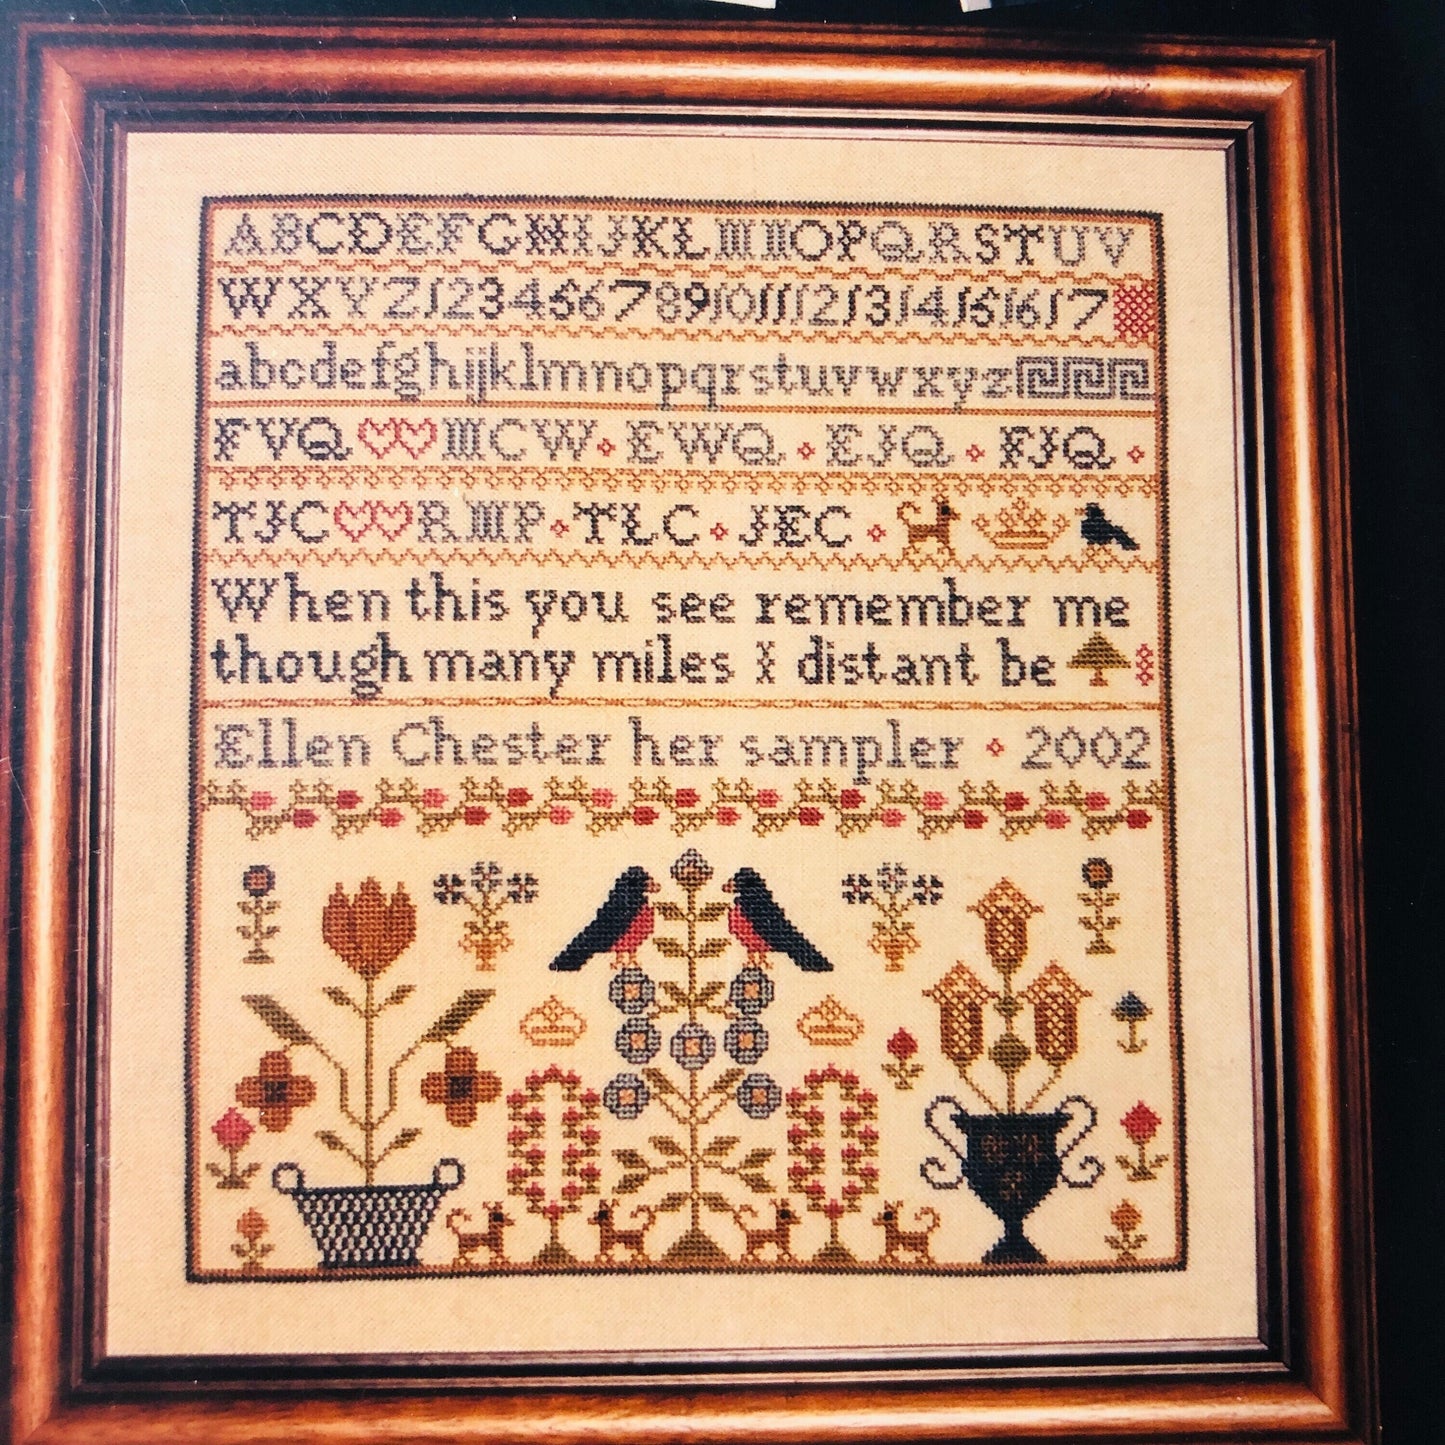 ABCDEFGHIJKLMNOPQRSTUV
WXYZ1234567891011121314151617
abcdefghijklmnopqrstuvwxyz
FVQ MCW EWQ EJQ FJQ
TJC RMP TLC JEC
When this you see remember me
though many miles I distant be
Ellen Chester her sampler 2002